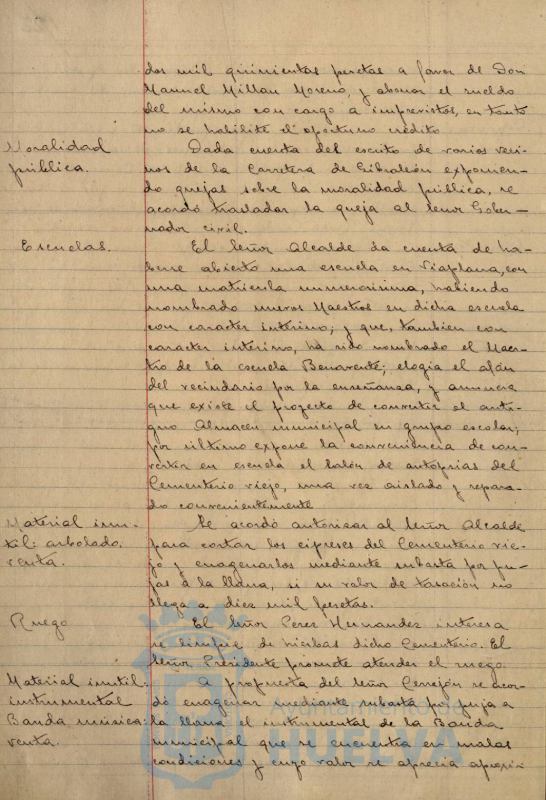 dos mil quinientas pesetas a favor de Don
Manuel Millan Moreno, y abonar el sueldo
del mismo con cargo a imprevistos, en tanto
no se habilite el oportuno crédito
Moralidad
pública.
Dada cuenta del escrito de varios veci-
nos de la Carretera de Gibraleón exponien-
do quejas sobre la moralidad pública, se
acordó trasladar la queja al Señor Gober-
nador civil.
Escuelas.
El Señor Alcalde da cuenta de ha-
berse abierto una escuela en Viaplana, con
una matricula numerosisima, habiendo
nombrado nuevos Maestros en dicha escuela
con caracter interino; y que, tambien con
caracter interino, ha sido nombrado el Maes-
tro de la escuela Benavente; elogia el afán
del vecindario por la enseñanza, y anuncia
que existe el proyecto de convertir el anti-
guo Almacen municipal en grupo escolar;
por último expone la conveniencia de con-
vertir en escuela el Salón de autopsias del
Cementerio viejo, una vez aislado y repara-
do convenientemente
Material inu-
til: arbolado.
venta.
Se acordó autorizar al Señor Alcalde
para cortar los cipreses del Cementerio vie-
jo y enagenarlos mediante subasta por pu-
jas a la llana, si su valor de tasación no
llega a diez mil pesetas.
Ruego
El Señor Perez Hernandez interesa
se limpie de hierbas dicho Cementerio. El
Señor Presidente promete atender el ruego.
Material inutil:
instrumental
Banda música:
venta.
A propuesta del Señor Cerrejón se acor-
dó enagenar mediante subasta por puja a
la llana el instrumental de la Banda
municipal que se encuentra en malas
condiciones y cuyo valor se aprecia aproxi-
Ayuntamiento de
HUELVA